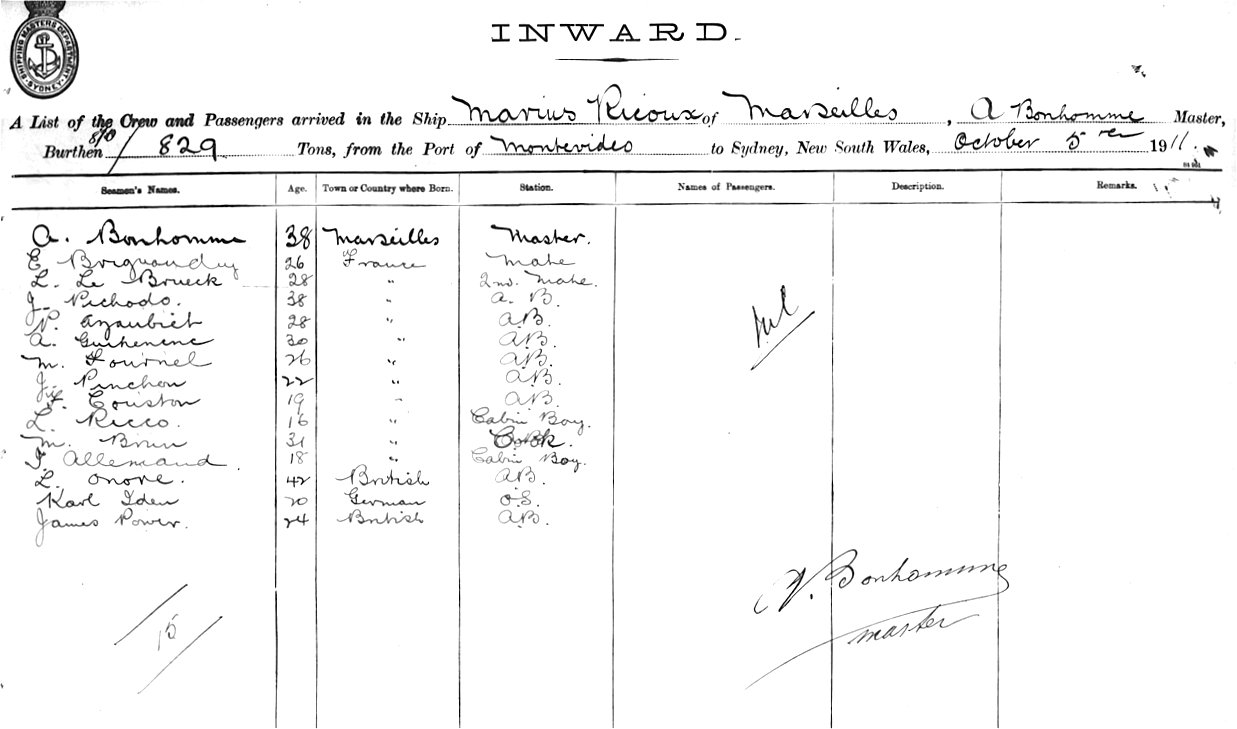 SHIPPING MASTERS DEPARTMENT SYDNEY
INWARD.
A List of the Crew and Passengers arrived in the Ship Marius Ricoux of Marseilles, A Bonhomme Master,
Burthen 829 Tons, from the Port of Montevideo to Sydney, New South Wales, October 5 1911.
Seamen's Names. Age. Town or Country where Born. Station. Names of Passengers. Description. Remarks.
A. Bonhomme 38 Marseilles Master.
E 26 France Mate
L. Le Brueck 28 " 2nd. Mate.
J. Pichodo. 38 " A. B.
P. 28 " A.B.
A. 30 " A.B.
M. Fournel 26 " A.B.
J. Pinchon 22 " A.B.
F. Couston 19 " A.B.
L. Ricco. 16 " Cabin Boy.
M. Brun 31 " Cook.
F. Allemand. 18 " Cabin Boy.
L. Onore. 42 British A.B.
Karl Iden 20 German O.S.
James Power. 24 British A.B.
Nil
15
Bonhomme
master